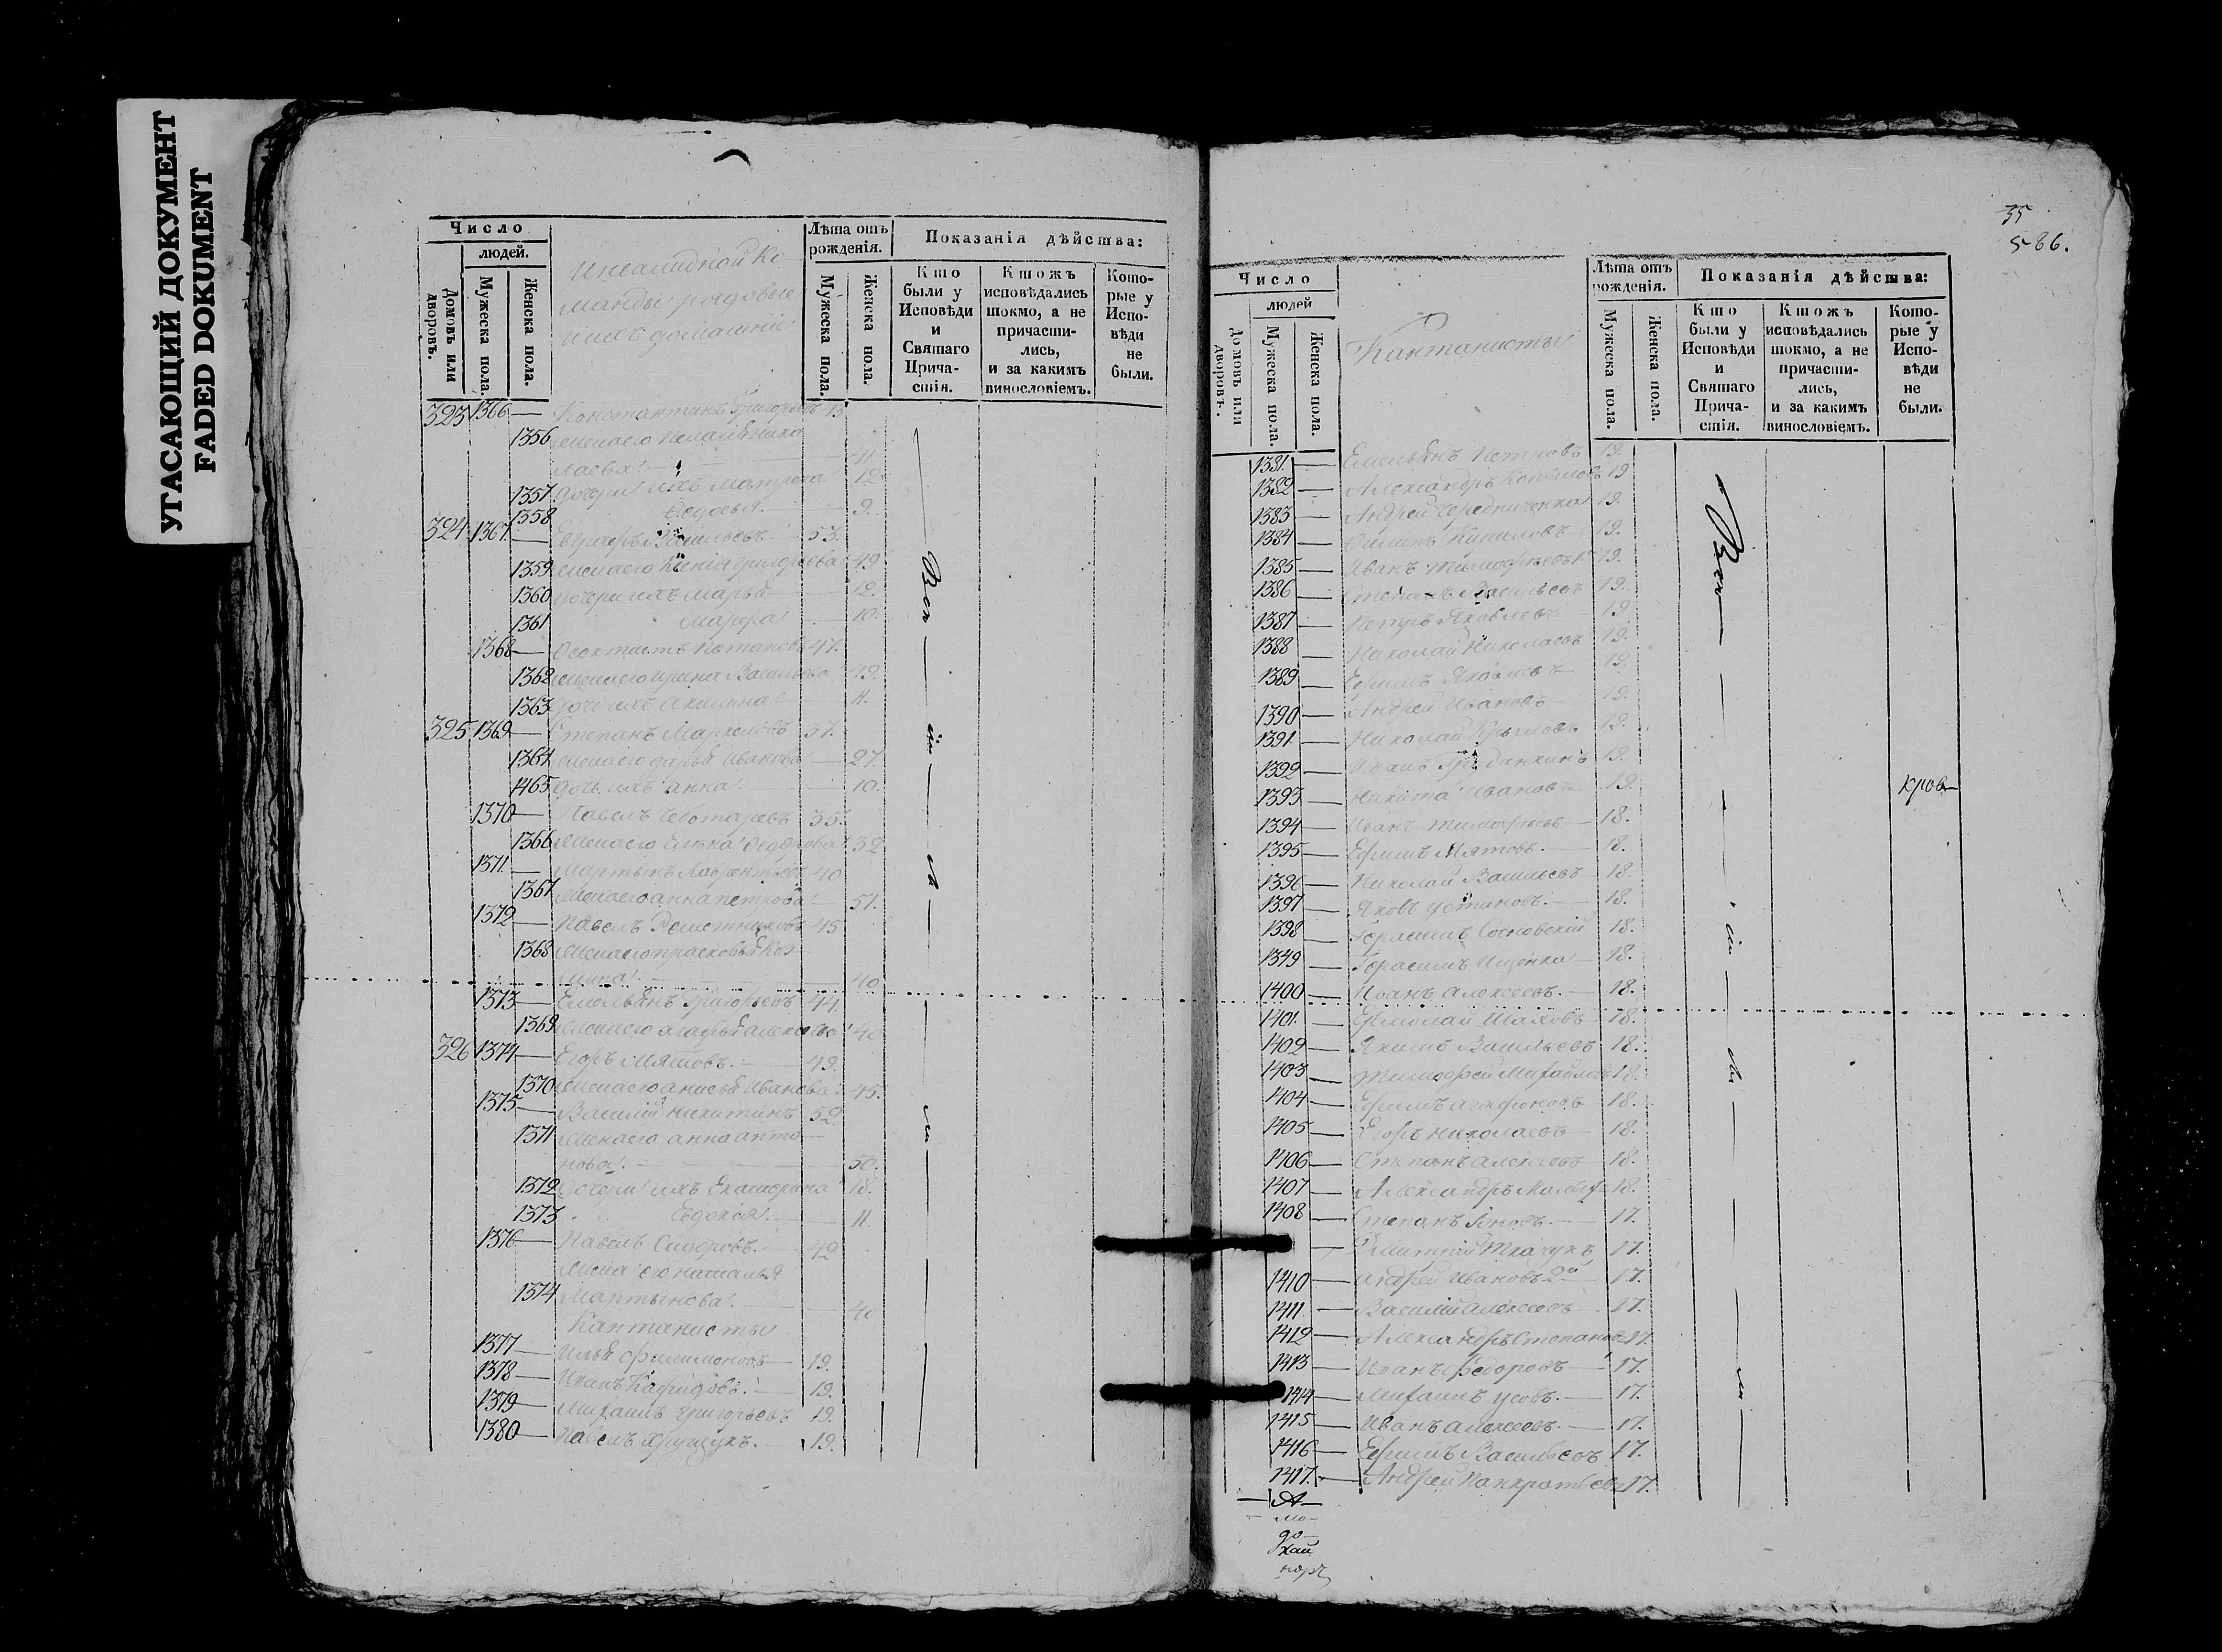 УГАСАЮЩИЙ ДОКУМЕНТ
FADED DOKUMENT
Число
людей.
Домовъ или дворовъ.
Мужеска пола.
Женска пола.
Инвалидной ко
манды рядовые
и ихъ домашніе
Лѣта отъ рожденія.
Мужеска пола.
Женска пола.
Показанія дѣйства:
Кто были у Исповѣди и Святаго Прича-стія.
Ктожъ исповѣдались токмо, а не причасти-лись, и за какимъ винословіемъ.
Кото-рые у Испо-вѣди не были.
323 1366 — Константинъ Григорьевъ
1356 жена его Пелагея Нико
лаева
1357 дочери ихъ Матрона 12
1358 Ѳедосья 9.
324 1367 — Евграфъ Васильевъ 53.
1359 жена его Ксенія 49
1360 дочери ихъ Марья 12.
1361 Марфа 10.
1368 — Ѳеоктистъ Потаповъ 47.
1362 жена его Ирина Васильева 49.
1363 дочь ихъ Акилина 11.
325 1369 — Степанъ Маркеловъ 37.
1364 жена его Дарья Иванова 27.
1465 дочь ихъ Анна 10.
1370 — Павелъ Чеботаревъ 35.
1366 жена его Елена Ѳедорова 32
1371. — Мартынъ Лаврентьевъ 40
1367 жена его Анна Петрова 51.
1372 — Павелъ Решетниковъ 45
1368 жена его Прасковья Коз
мина 40
1373 — Емельянъ Григорьевъ 44.
1369 жена его Агафья Алексѣева 40
326 1374 — Егоръ Мятовъ. 49.
1370 жена его Анисья Иванова 45.
1375 — Василій Никитинъ 52
1371 жена его Анна Анто
нова. 50.
1372 дочери ихъ Екатерина 18.
1373 Евдокія. 11.
1376 — Павелъ Сидоровъ. 42
жена его Наталья
1374 Мартынова. 40
Кантанисты
1377 — Илья Филимоновъ 19.
1378 — Иванъ 19.
1379 — Михаилъ Григорьевъ 19.
1380 — Павелъ 19.
Всѣ
35
586.
Число
людей
Домовъ или дворовъ.
Мужеска пола.
Женска пола.
Кантанисты
Лѣта отъ рожденія.
Мужеска пола.
Женска пола.
Показанія дѣйства:
Кто были у Исповѣди и Святаго Прича-стія.
Ктожъ исповѣдались токмо, а не причасти-лись, и за какимъ винословіемъ.
Кото-рые у Испо-вѣди не были.
1381. — Емельянъ Петровъ 19.
1382 — Александръ Копыловъ 19
1383 — Андрей Чередниченко 19.
1384 — 19.
1385 — Иванъ Тимофѣевъ 1й 19.
1386 — Степанъ Васильевъ 19.
1387 — Петръ Яковлевъ 19
1388 — Николай Николаевъ 19.
1389 — Ефимъ Яковлевъ 19.
1390 — Андрей Ивановъ 19.
1391. — Николай Крыловъ 19.
1392 — Иванъ 19.
1393 — Никита Ивановъ 19.
кров—
1394 — Иванъ Тимофѣевъ 18.
1395 — Ефимъ Мятовъ. 18.
1396 — Николай Васильевъ 18.
1397 — Яковъ Устиновъ. 18.
1398 — Герасимъ Сосновскій 18.
1349 — Герасимъ Ищенко 18.
1400 — Иванъ Алексеевъ. 18.
1401. — Ермолай Шаховъ 18.
1402 — Якимъ Васильевъ 18.
1403 — Тимофей Михайловъ 18.
1404 — Ефимъ Агафоновъ 18.
1405 — Егоръ Николаевъ 18.
1406 — Степанъ Алексеевъ 18.
1407 — Александръ 18.
1408 — Степанъ 17.
— Дмитрій Ткачукъ 17.
1410 — Андрей Ивановъ 2й 17.
1411. — Василій Алексеевъ 17.
1412 — Александръ Степановъ 17.
1413 — Иванъ Ѳедоровъ 17.
1414 — Михаилъ Усовъ. 17.
1415 — Иванъ Алексеевъ. 17.
1416 — Ефимъ Васильевъ 17.
1417. — Андрей Панкратьевъ 17.
Всѣ